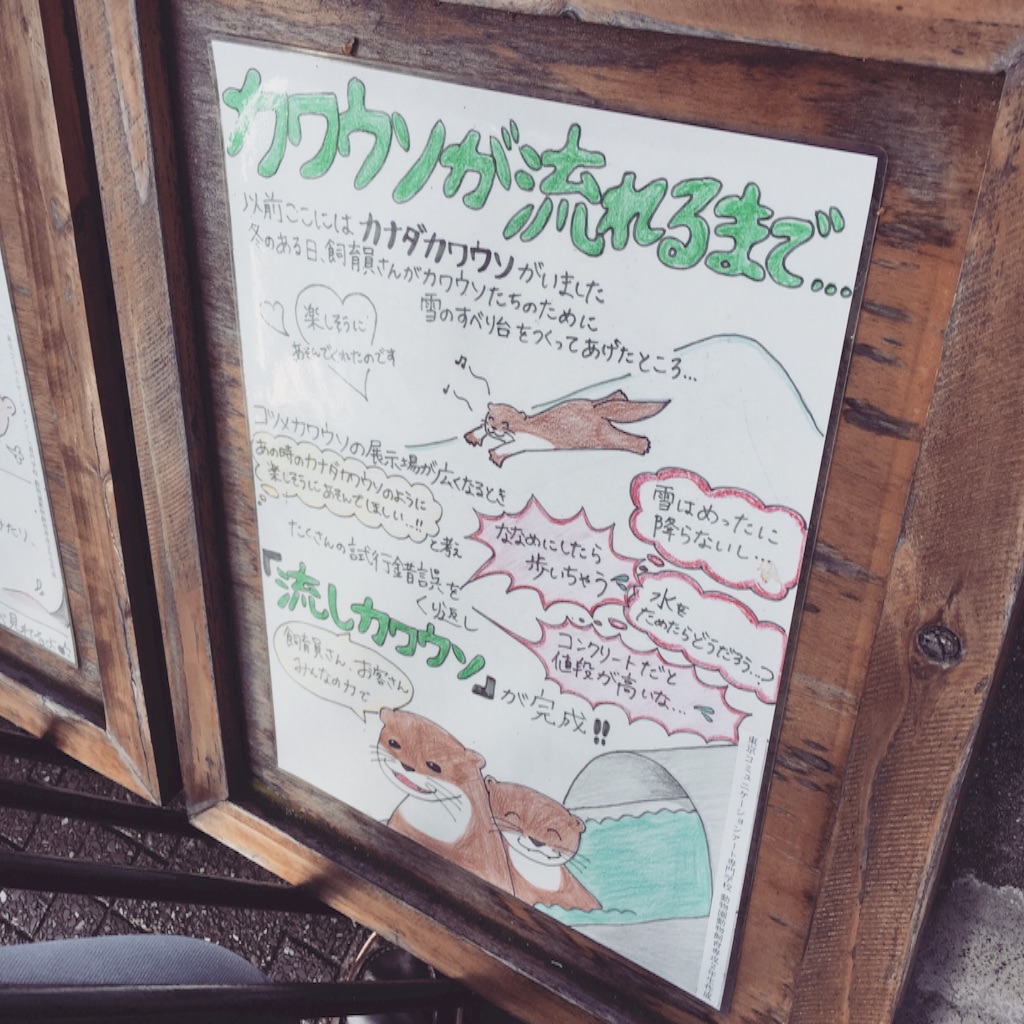 カワウソが流れるまで…
以前ここには カナダカワウソ がいました
冬のある日、飼育員さんがカワウソたちのために
雪のすべり台をつくってあげたところ…
楽しそうに
あそんでくれたのです
コツメカワウソの展示場が広くなるとき
あの時のカナダカワウソのように
楽しそうにあそんでほしい…!!
と考え
たくさんの試行錯誤を
くり返し
雪はめったに
降らないし…
ななめにしたら
歩いちゃう
水を
ためたらどうだろう…?
コンクリートだと
値段が高いな…
『流しカワウソ』が完成!!
飼育員さん、お客さん
みんなの力で
東京コミュニケーションアート専門学校 動物園動物飼育専攻